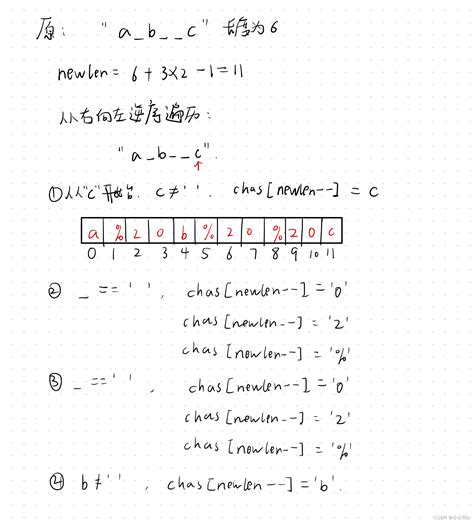 原： " a_b__c" 长度为6
newlen = 6 + 3×2 - 1 = 11
从右向左逆序遍历：
"a_b__c".
↑
① 从"c"开始, c ≠ ' ', chas[newlen--] = c
a % 2 0 b % 2 0 % 2 0 c
0 1 2 3 4 5 6 7 8 9 10 11
② _ == ' ', chas[newlen--] = '0'
chas[newlen--] = '2'
chas[newlen--] = '%'
③ _ == ' ', chas[newlen--] = '0'
chas[newlen--] = '2'
chas[newlen--] = '%'
④ b ≠ ' ', chas[newlen--] = 'b'.